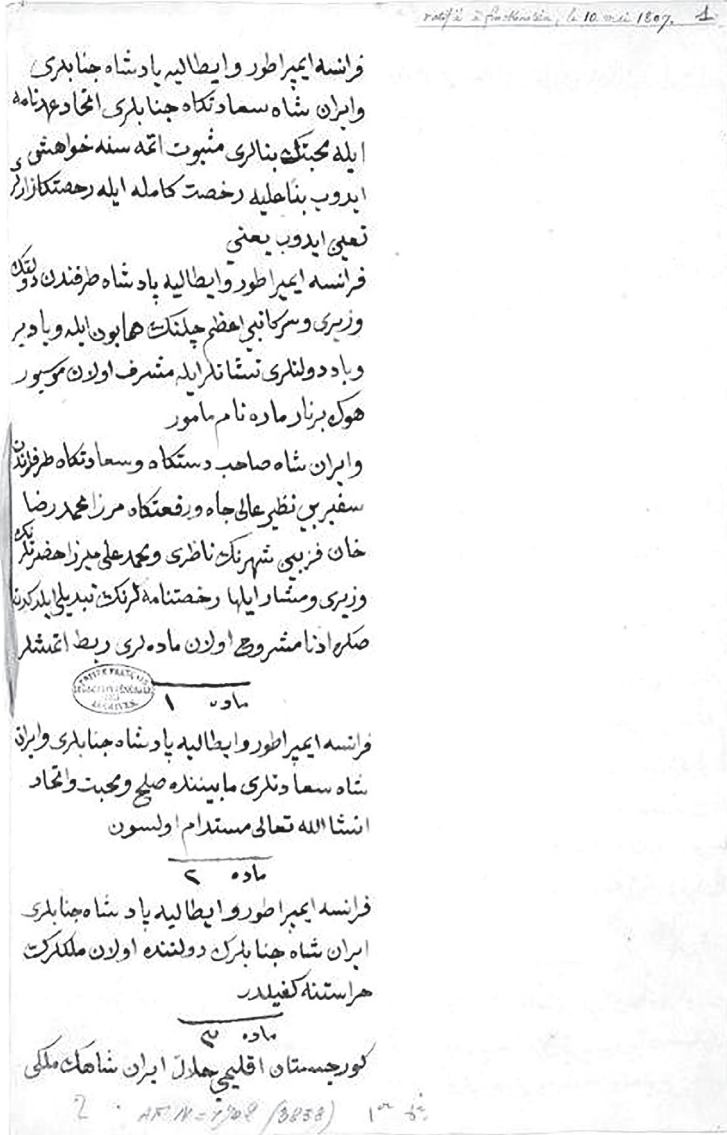 ratifié à finckenstein, le 10. mai 1807. 1
فرانسه ایمپراطور و ایطالیه پادشاه جنابلری
وایران شاه سعادتکاه جنابلری اتحاد عهدنامه
ایله محبتنك بنالری مثبوت اتمه سنه خواهشی
ایدوب بناعلیه رخصت کامله ایله رخصتکارلر
تعیی ایدوب یعنی
فرانسه ایمپراطور و ایطالیه پادشاه طرفندن دولتنك
وزیری و سرکاتبی اعظم چلنك همایون ایله و بادیر
وباد دولتلری نشانلر ایله مشرف اولان موسیور
هوك برنار ماره نام مامور
وایران شاه صاحب دستکاه وسعادتکاه طرفلرندن
سفیر بی نظیر عالی جاه ورفعتکاه مرزا محمد رضا
خان قزبیی شهرنك ناظری ومحمد علی میرزا حضرتلرینك
وزیری ومشار ایلها رخصتنامه لرنك تبدیلی ایلدکدن
صکره ادنا مشروح اولان ماده لری ربط اتمشلر
ماده ١
ARCHIVES
فرانسه ایمپراطور وایطالیه پادشاه جنابلری وایران
شاه سعادتلری مابیننده صلح ومحبت واتحاد
انشا الله تعالی مستدام اولسون
ماده ٢
فرانسه ایمپراطور وایطالیه پادشاه جنابلری
ایران شاه جنابلرك دولتنده اولان ملکلرك
هراستنه کفیلدر
ماده ٣
کورجستان اقلیمی حلال ایران شاهك ملکی
2 . AF. IV = 1702 (3833) 1er